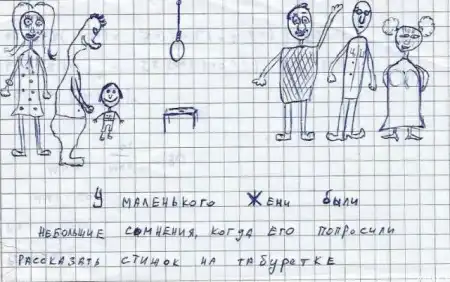 У маленького Жени были
небольшие сомнения, когда его попросили
рассказать стишок на табуретке